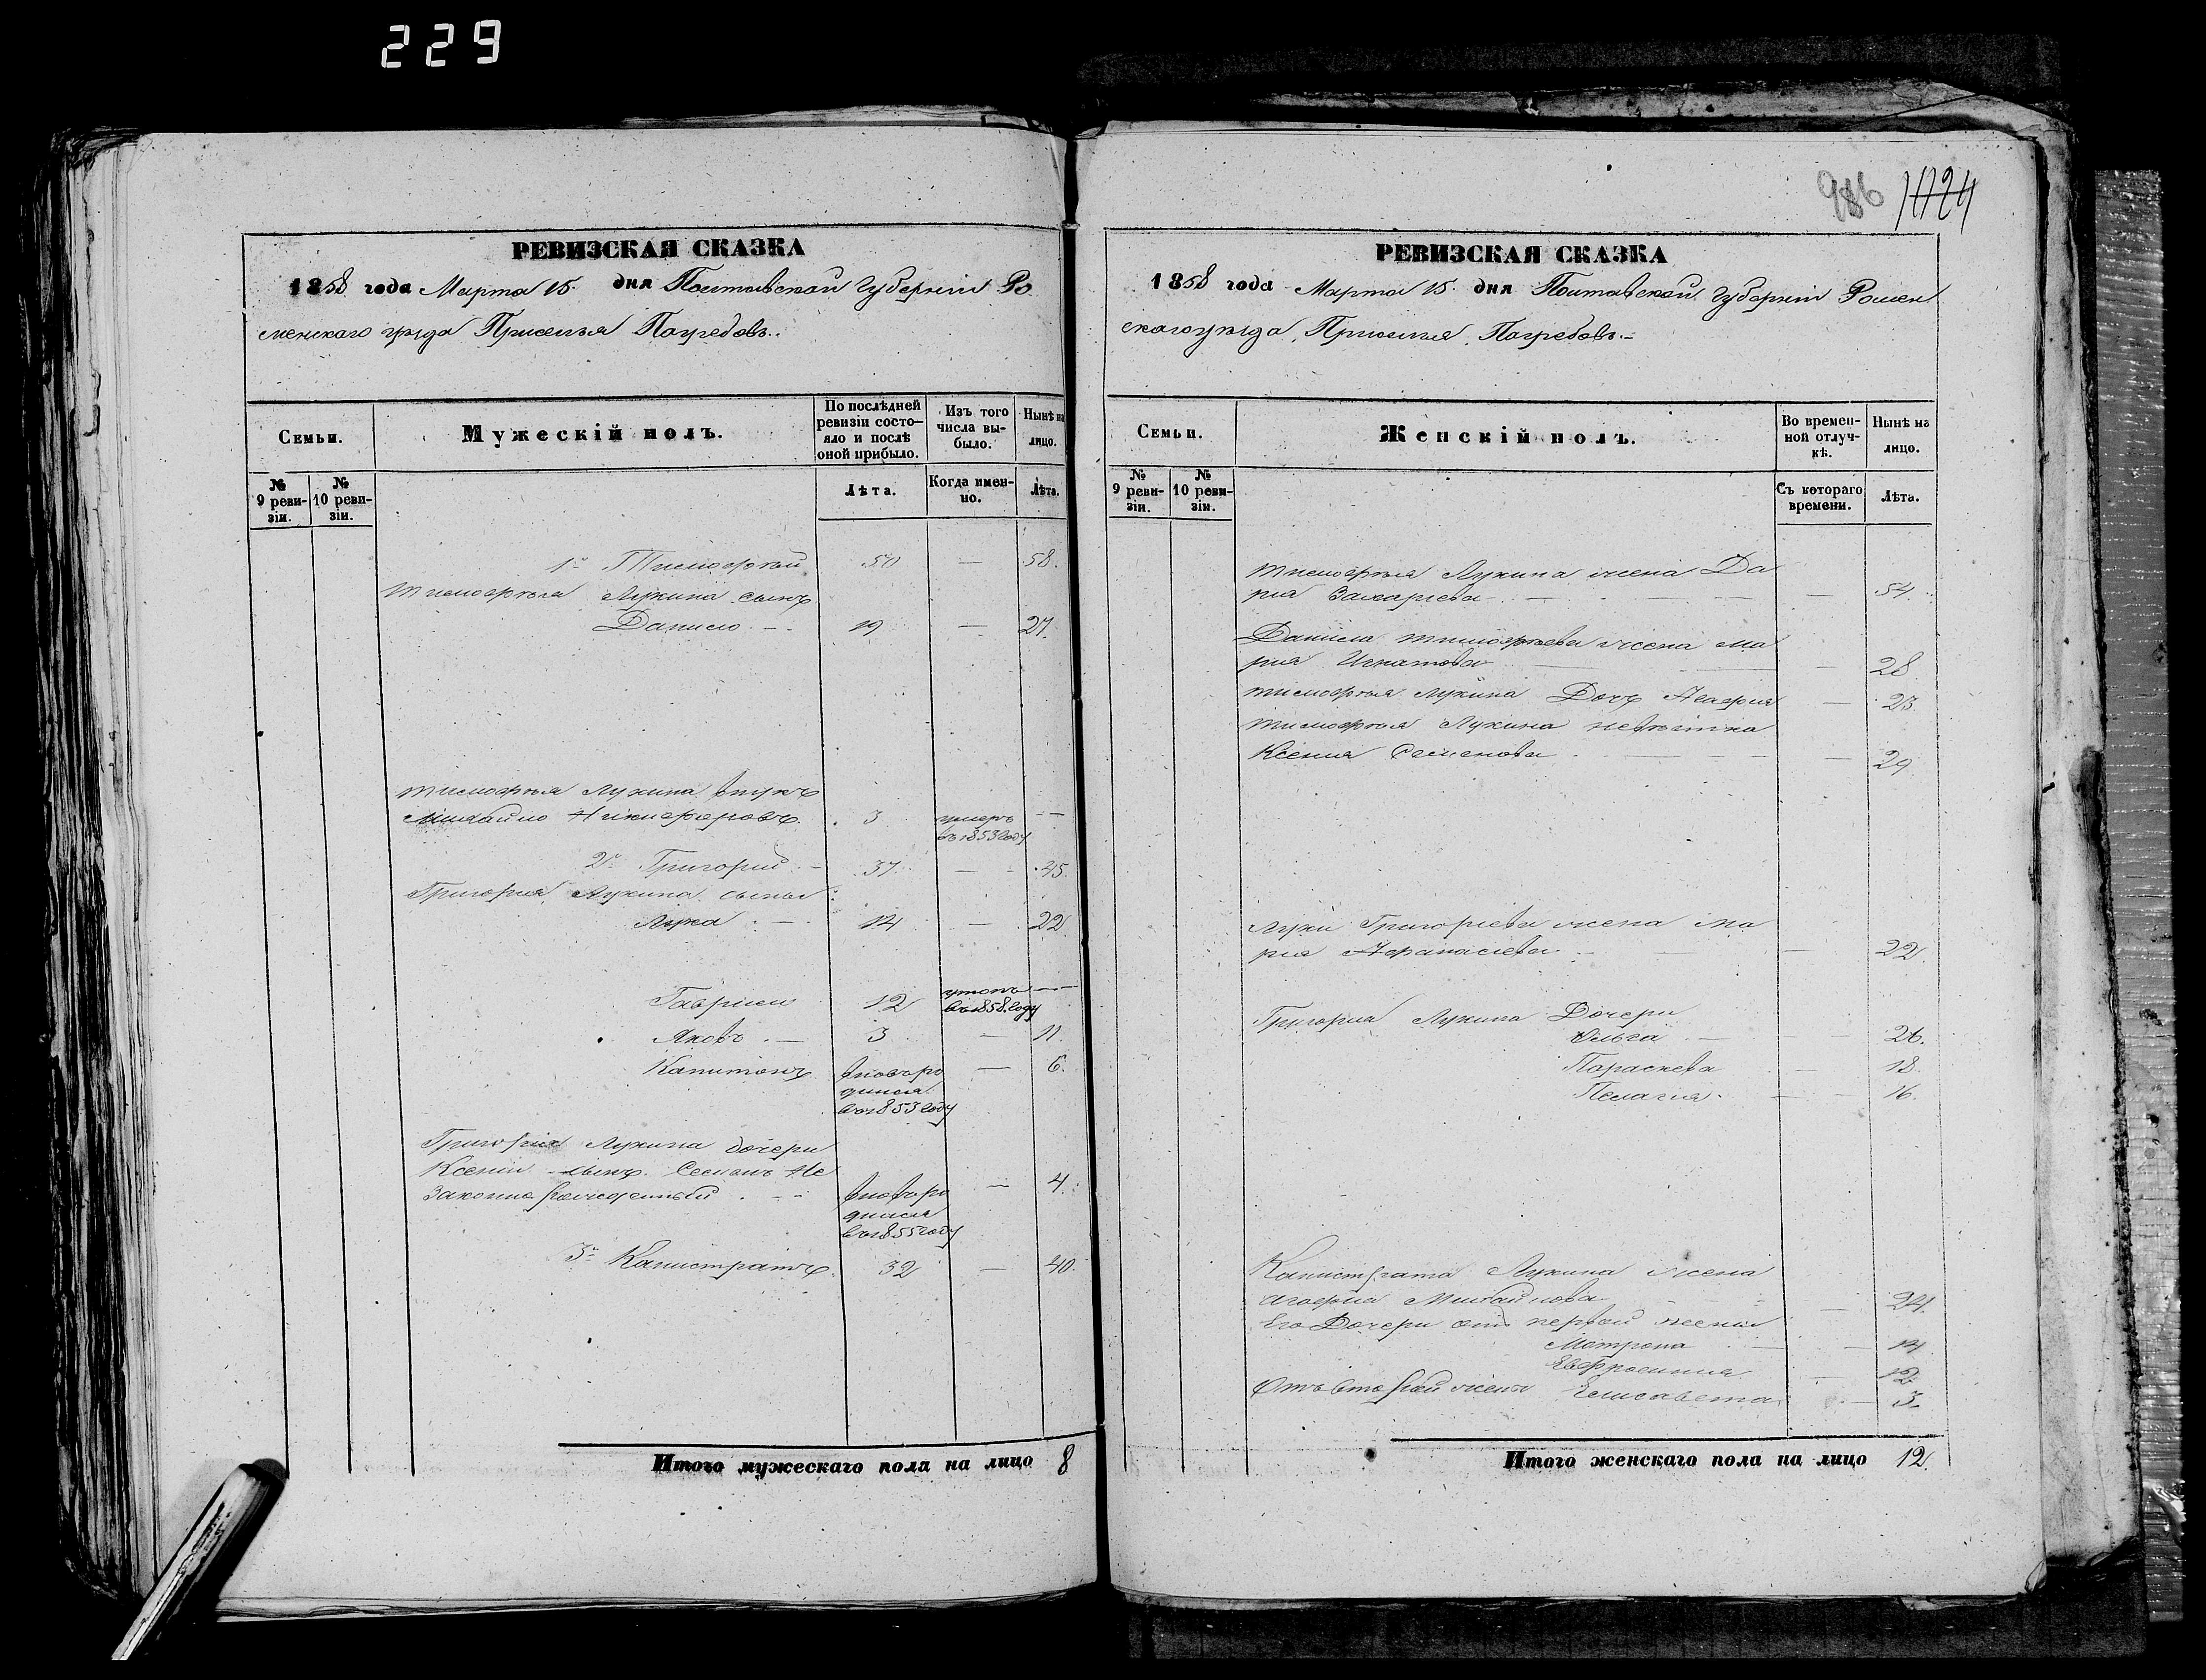 229
986 1024
РЕВИЗСКАЯ СКАЗКА
1858 года Марта 15. дня Полтавской Губерніи Ро
менскаго уѣзда Приселья Погребовъ.
Семьи.
Мужескій полъ.
По послѣдней
ревизіи состо-
яло и послѣ
оной прибыло.
Изъ того
числа вы-
было.
Нынѣ на
лицо.
№
9 реви-
зіи.
№
10 реви-
зіи.
Лѣта.
Когда имен-
но.
Лѣта.
1й Тимофей 50 — 58.
Тимофѣя Лукина сынъ
Данило — 19 — 27.
Тимофѣя Лукина внукъ
Михайло Никифоровъ. 3 умеръ —
въ 1853 году
2й Григорий — 37 — 45.
Григорія Лукина сыны:
Лука — 14 — 22
Гавріилъ 12 утопъ —
въ 1858. году
Яковъ — 3 — 11.
Капитонъ вновь ро — 6.
дился
въ 1853 году
Григорія Лукина дочери
Ксеніи сынъ Семенъ Не
законнорожденный — вновь ро — 4.
дился
въ 1855 году
3й Калистратъ 32 — 40.
Итого мужескаго пола на лицо 8
РЕВИЗСКАЯ СКАЗКА
1858 года Марта 15. дня Полтавской Губерніи Ромен
скаго уѣзда, Приселья, Погребовъ.—
Семьи.
Женскій полъ.
Во времен-
ной отлуч-
кѣ.
Нынѣ на
лицо.
№
9 реви-
зіи.
№
10 реви-
зіи.
Съ котораго
времени.
Лѣта.
Тимофѣя Лукина жена Да
рія Захаріева — — 54.
Данила Тимофѣева жена Ма
рия Игнатова — — 28
Тимофѣя Лукина Дочь Агафия — 23.
Тимофѣя Лукина невѣстка
Ксения Семенова — — 29
Луки Григоріева жена Ма
рия Афанасиева — — 22
Григория Лукина Дочери
Ольга — — 26.
Параскева — 18.
Пелагия. — 16.
Калистрата Лукина жена
Агафия Михайлова — — 24.
Его Дочери отъ первой жены
Матрона — — 14
Евфросиния — 12
Отъ второй жены Елисавета — 3
Итого женскаго пола на лицо 12.